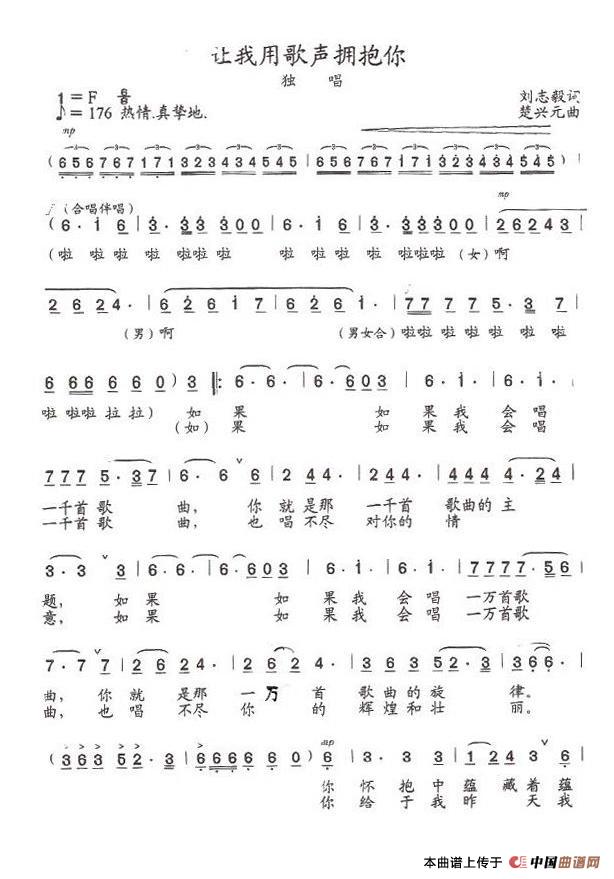 让我用歌声拥抱你
独 唱
1 = F
♪= 176 热情.真挚地.
刘志毅词
楚兴元曲
mp
( 6 5 6 7 6 7 1 7 1 3 2 3 4 3 4 5 4 5 | 6 5 6 7 6 7 1 7 1 3 2 3 4 3 4 5 4 5 ) |
(合唱伴唱)
mp
( 6 · i 6 | 3 · 3 3 3 0 0 | 6 · i 6 | 3 · 3 3 3 0 0 | 2 6 2 4 3 |
(啦 啦 啦 啦 啦啦 啦 啦 啦 啦 啦 啦啦啦 (女)啊
2 6 2 4 · | 6 2 6 1 7 | 6 2 6 1 · | 7 7 7 7 5 · 3 7 |
(男)啊 (男女合) 啦啦 啦 啦 啦 啦 啦
6 6 6 6 6 0 ) 3 |: 6 · 6 · | 6 · 6 0 3 | 6 · i · | 6 · i · |
啦 啦啦 拉 拉) 如 果 如 果 我 会 唱
(如) 果 如 果 我 会 唱
7 7 7 5 · 3 7 | 6 · 6 ∨ 6 | 2 4 4 · | 2 4 4 · | 4 4 4 4 · 2 4 |
一千首 歌 曲, 你 就 是那 一千 首 歌曲的 主
一千首 歌 曲, 也 唱 不尽 对你 的 情
3 · 3 ∨ 3 | 6 · 6 · | 6 · 6 0 3 | 6 · i · | 6 · i · | 7 7 7 7 · 5 6 |
题, 如 果 如 果 我 会 唱 一万首歌
意, 如 果 如 果 我 会 唱 一万首歌
7 · 7 ∨ 7 | 2 6 2 4 · | 2 6 2 4 · | 3 6 3 5 2 · 3 | 3 6 6 · |
曲, 你 就 是 那 一 万 首 歌 曲 的 旋 律。
曲, 也 唱 不 尽 你 的 辉 煌 和 壮 丽。
mp
( 3 6 3 5 2 · 3 | 6 6 6 6 6 0 ) 6 | 3 · 3 3 | 1 2 4 3 ∨ 3 |
你 怀 抱 中 蕴 藏 着 蕴
你 给 于 我 昨 天 我
本曲谱上传于 中国曲谱网